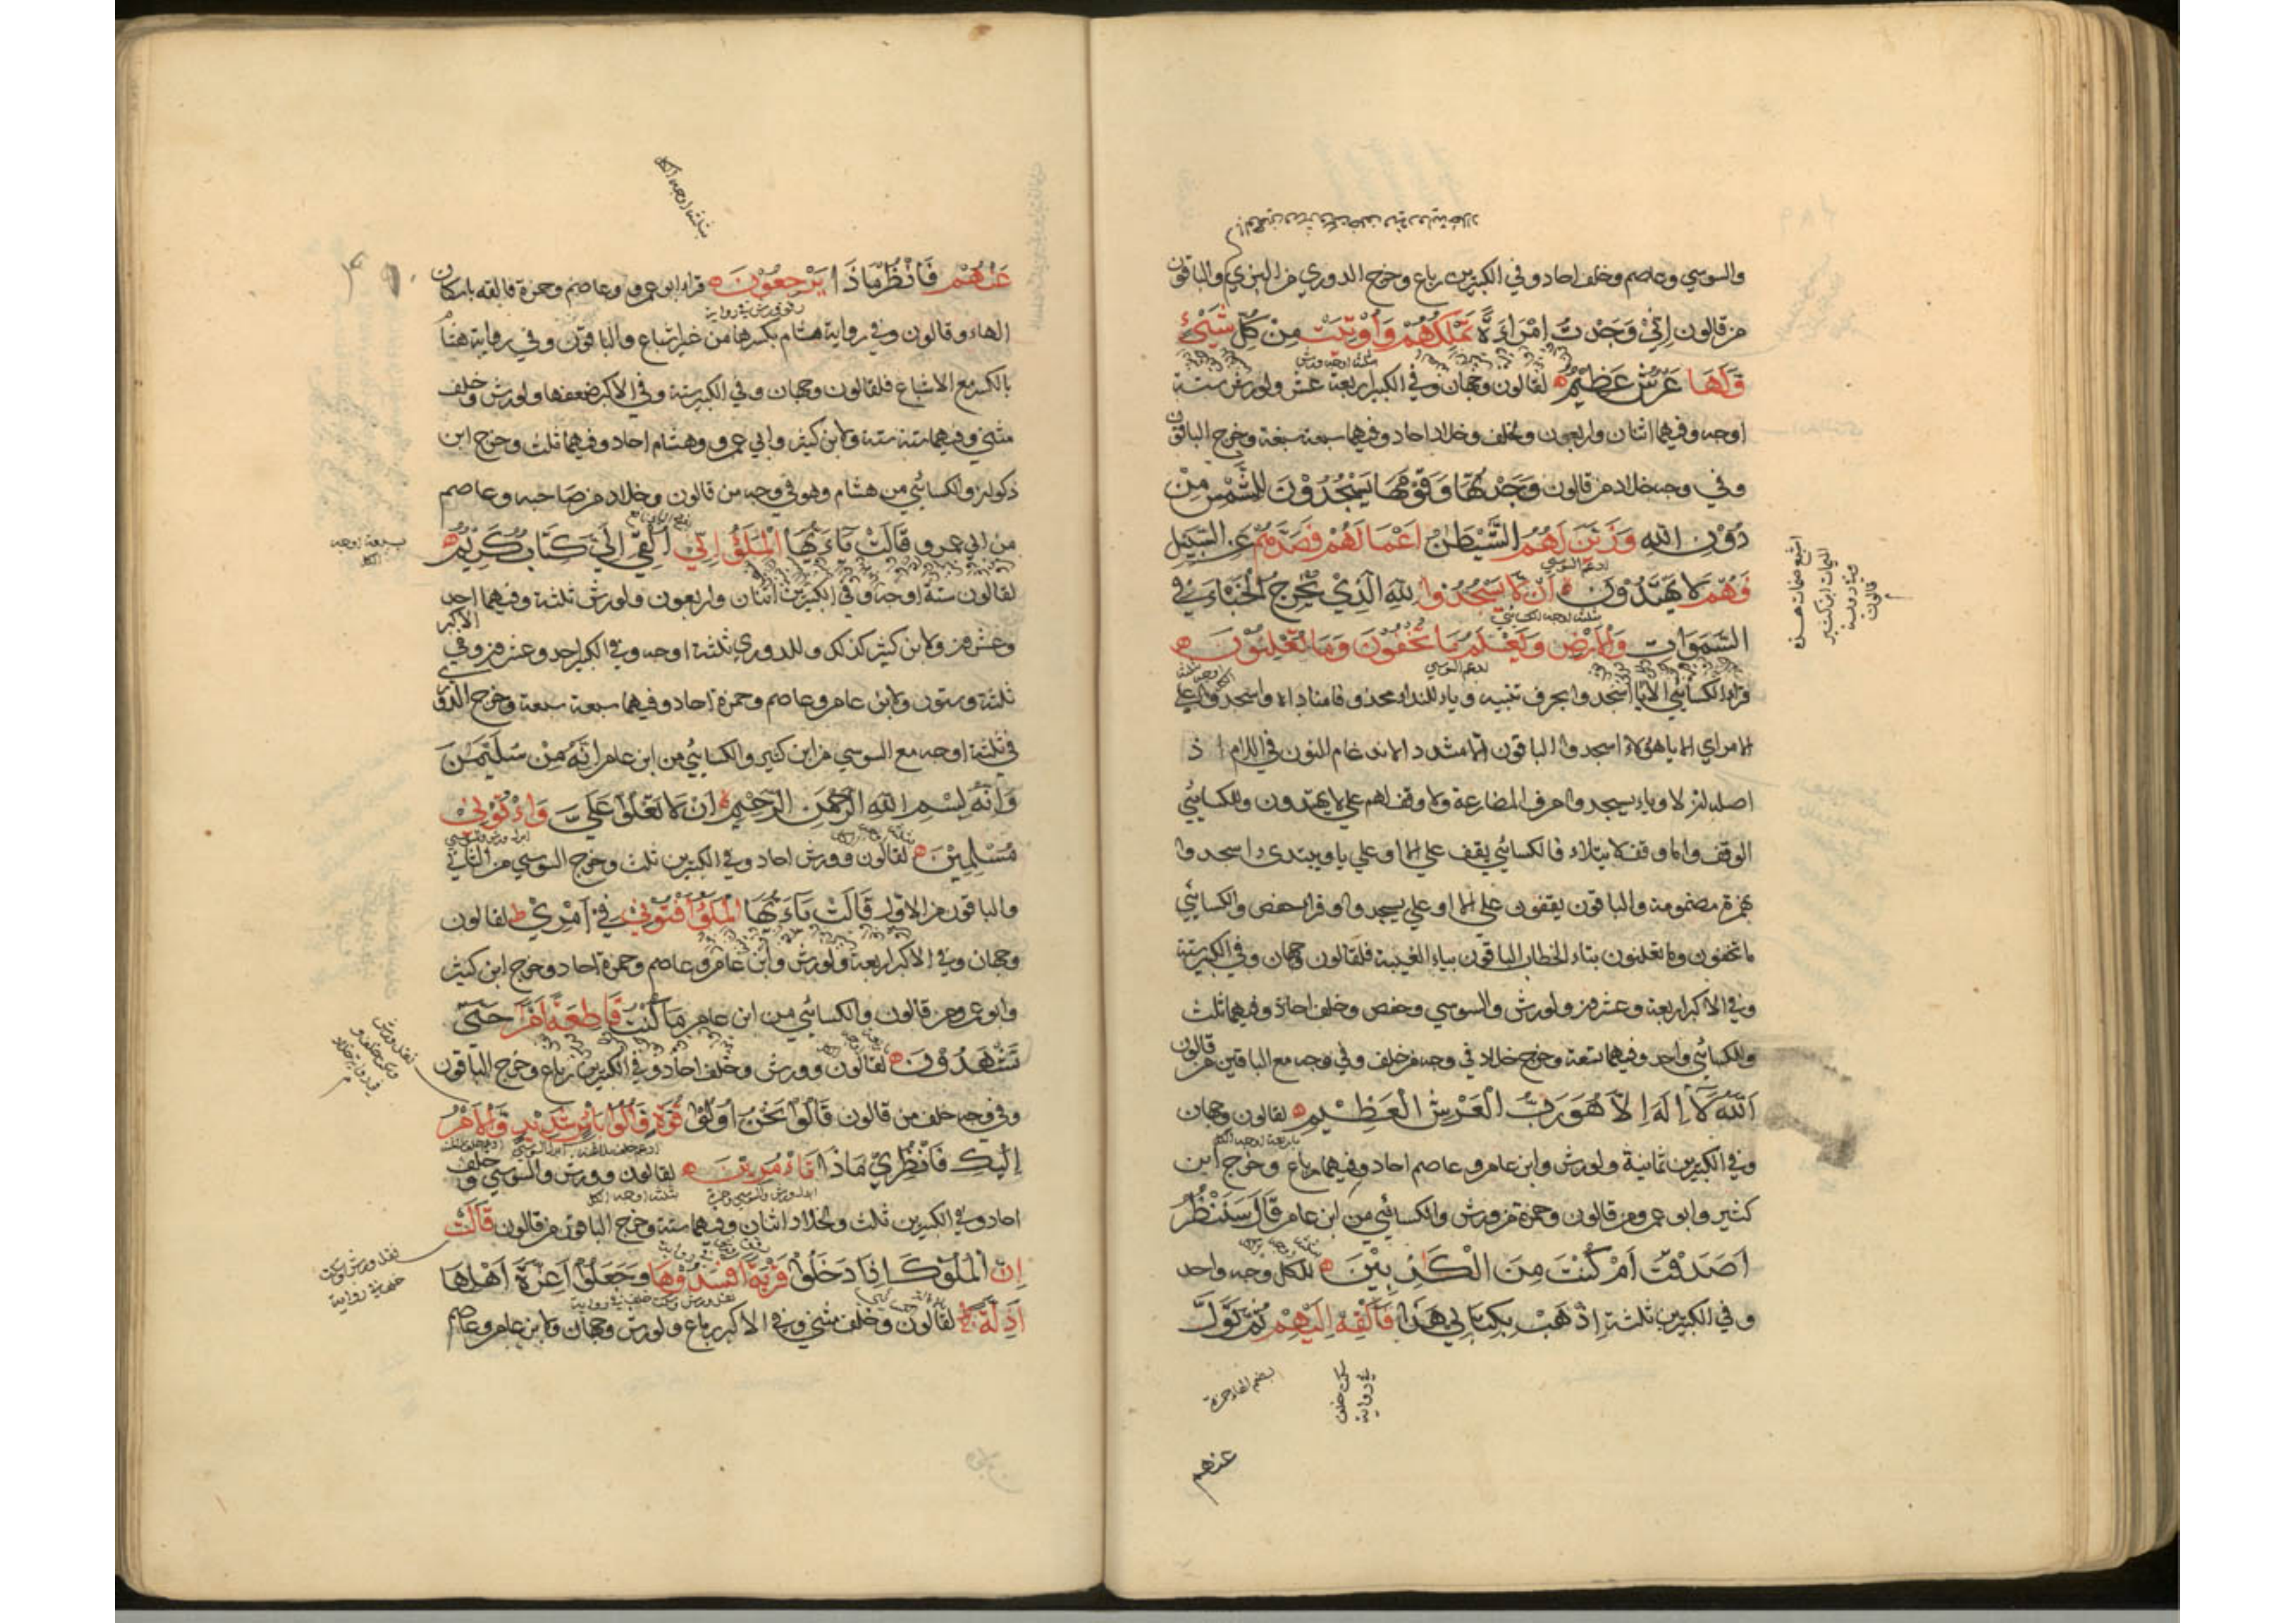 والسوسي وعاصم وخلف احاد وفي الكبيرين رباع وخرج الدوري من البزي والباقون
من قالون اِنِّيْ وَجَدْتُّ امْرَاَةً تَمْلِكُهُمْ وَاُوْتِيَتْ مِنْ كُلِّ شَيْءٍ
وَّلَهَا عَرْشٌ عَظِيْمٌ لقالون وجهان وفي الكبير اربعة عشر ولورش ستة
اوجه وفيهما اثنان واربعون ولخلف وخلاد احاد وفيهما سبعة سبعة وخرج الباقون
وفي وجه خلاد من قالون وَجَدْتُّهَا وَقَوْمَهَا يَسْجُدُوْنَ لِلشَّمْسِ مِنْ
دُوْنِ اللّٰهِ وَزَيَّنَ لَهُمُ الشَّيْطٰنُ اَعْمَالَهُمْ فَصَدَّهُمْ عَنِ السَّبِيْلِ
فَهُمْ لَا يَهْتَدُوْنَ اَنْ لَّا يَسْجُدُوْا لِلّٰهِ الَّذِيْ يُخْرِجُ الْخَبْاَ فِي
السَّمَوَاتِ وَالْاَرْضِ وَيَعْلَمُ مَا تُخْفُوْنَ وَمَا تُعْلِنُوْنَ
قراء الكسائي الا يا اسجدوا بحرف تنبيه وياء للنداء محذوفا مناداه واسجدوا علي
الامر اي الا يا هؤلاء اسجدوا الباقون الا مشدد الا بادغام النون في اللام اذ
اصله ان لا وياء يسجدوا حرف المضارعة ولا وقف لهم علي لا يهتدون وللكسائي
الوقف واما وقف الابتلاء فالكسائي يقف علي الا وعلي يا ويبتدئ اسجدوا
بهمزة مضمومة والباقون يقفون علي الا او علي يسجدوا وقرا حفص والكسائي
ما تخفون وما تعلنون بتاء الخطاب الباقون بياء الغيبة فلقالون وجهان وفي الكبير ستة
وفي الاكبر اربعة وعشرون ولورش والسوسي وحفص وخلف احاد وفيهما ثلث
وللكسائي واحد وفيهما تسعة وخرج خلاد في وجه من خلف وفي وجه مع الباقين من قالون
اَللّٰهُ لَا اِلٰهَ اِلَّا هُوَ رَبُّ الْعَرْشِ الْعَظِيْمِ لقالون وجهان
وفي الكبيرين ثمانية ولورش وابن عامر وعاصم احاد وفيهما رباع وخرج ابن
كثير وابو عمرو من قالون وحمزة من ورش والكسائي من ابن عامر قَالَ سَنَنْظُرُ
اَصَدَقْتَ اَمْ كُنْتَ مِنَ الْكٰذِبِيْنَ للكل وجه واحد
وفي الكبيرين ثلثة اِذْهَبْ بِكِتَابِيْ هٰذَا فَاَلْقِهْ اِلَيْهِمْ ثُمَّ تَوَلَّ
سكت خلف
في رواية
بضم الهاء حمزة
عنهم
ثلثة اوجه للكل
عَنْهُمْ فَانْظُرْ مَاذَا يَرْجِعُوْنَ قراء ابو عمرو وعاصم وحمزة فالقه باسكان
الهاء وقالون وفي رواية هشام بكسرها من غير اشباع والباقون وفي رواية هشام
بالكسر مع الاشباع فلقالون وجهان وفي الكبير ستة وفي الاكبر ضعفها ولورش وخلف
مثني وفيهما ستة ستة ولابن كثير وابي عمرو وهشام احاد وفيهما ثلث وخرج ابن
ذكوان والكسائي من هشام وهو في وجه من قالون وخلاد من صاحبه وعاصم
من ابي عمرو قَالَتْ يَاَيُّهَا الْمَلَؤُ اِنِّيْ اُلْقِيَ اِلَيَّ كِتَابٌ كَرِيْمٌ
سبعة اوجه
للكل
لقالون ستة اوجه وفي الكبيرين اثنان واربعون ولورش ثلثة وفيهما احد
وعشرون ولابن كثير كذلك وللدوري ثلثة اوجه وفي الكبير احد وعشرون وفي الاكبر
ثلثة وستون ولابن عامر وعاصم وحمزة احاد وفيهما سبعة سبعة وخرج الدوري
في ثلثة اوجه مع السوسي من ابن كثير والكسائي من ابن عامر اِنَّهُ مِنْ سُلَيْمٰنَ
وَاِنَّهُ بِسْمِ اللّٰهِ الرَّحْمٰنِ الرَّحِيْمِ اَنْ لَا تَعْلُوْا عَلَيَّ وَأْتُوْنِيْ
مُسْلِمِيْنَ لقالون وورش احاد وفي الكبيرين ثلث وخرج السوسي من الثاني
والباقون من الاول قَالَتْ يَاَيُّهَا الْمَلَؤُ اَفْتُوْنِيْ فِيْ اَمْرِيْ لقالون
وجهان وفي الاكبر اربعة ولورش وابن عامر وعاصم وحمزة احاد وخرج ابن كثير
وابو عمرو من قالون والكسائي من ابن عامر مَا كُنْتُ قَاطِعَةً اَمْرًا حَتّٰى
تَشْهَدُوْنَ لقالون وورش وخلف احاد وفي الكبيرين رباع وخرج الباقون
وفي وجه خلف من قالون قَالُوْا نَحْنُ اُولُوْا قُوَّةٍ وَّاُولُوْا بَاْسٍ شَدِيْدٍ وَّالْاَمْرُ
اِلَيْكِ فَانْظُرِيْ مَاذَا تَاْمُرِيْنَ لقالون وورش والسوسي وخلف
احاد وفي الكبيرين ثلث ولخلاد اثنان وفيهما ستة وخرج الباقون من قالون قَالَتْ
اِنَّ الْمُلُوْكَ اِذَا دَخَلُوْا قَرْيَةً اَفْسَدُوْهَا وَجَعَلُوْا اَعِزَّةَ اَهْلِهَا
اَذِلَّةً لقالون وخلف مثني وفي الاكبر رباع ولورش وجهان ولابن عامر وعاصم